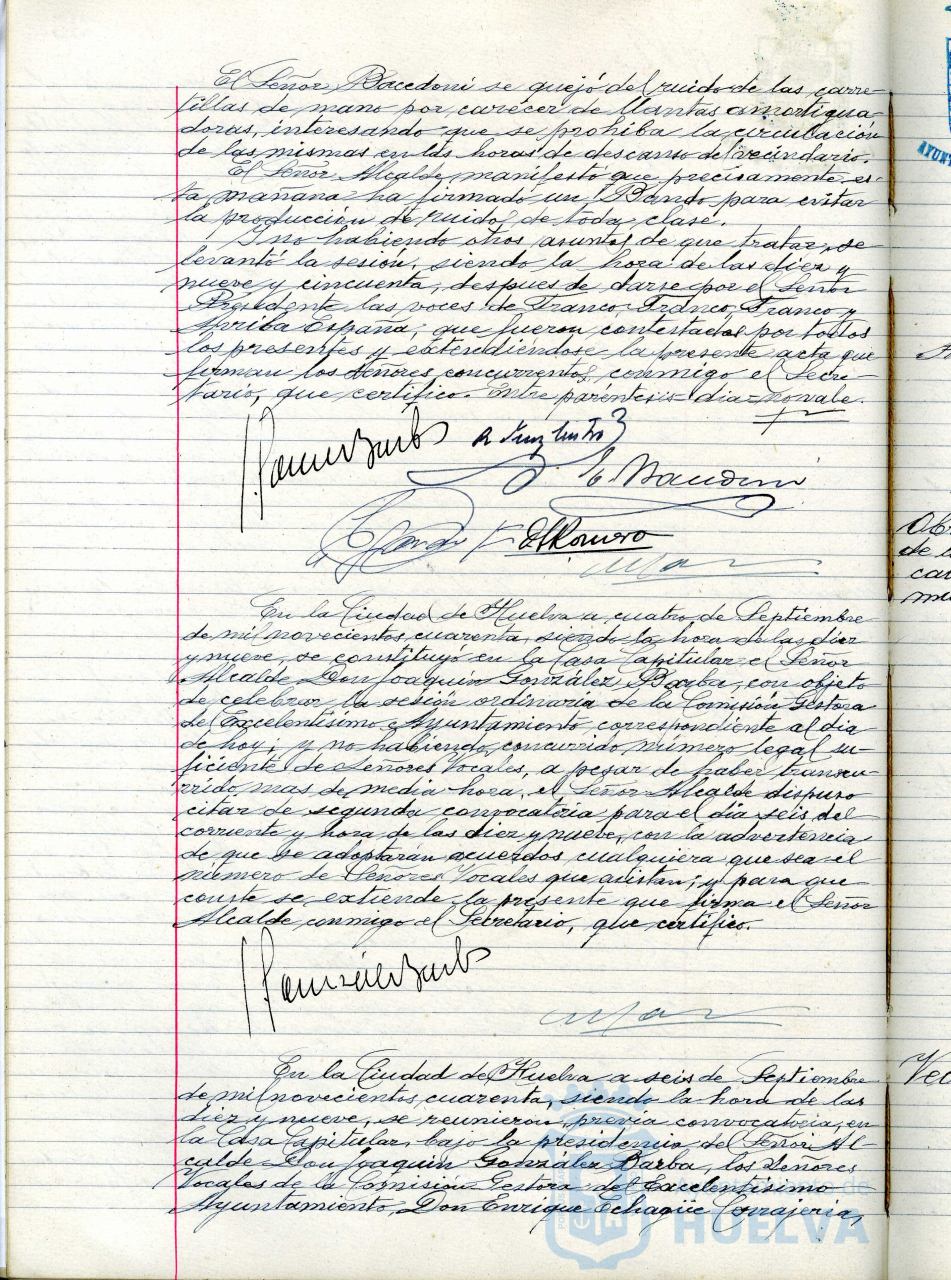 El Señor Bacedoni se quejó del ruido de las carre-
tillas de mano por carecer de llantas amortigua-
doras, interesando que se prohiba la circulación
de las mismas en las horas de descanso del vecindario.
El Señor Alcalde manifestó que precisamente es-
ta mañana ha firmado un Bando para evitar
la producción de ruidos de toda clase.
Y no habiendo otros asuntos de que tratar, se
levantó la sesión, siendo la hora de las diez y
nueve y cincuenta, despues de darse por el Señor
Presidente las voces de Franco, Franco, Franco y
Arriba España, que fueron contestadas por todos
los presentes y extendiéndose la presente acta que
firman los señores concurrentes, conmigo el Secre-
tario, que certifico. Entre paréntesis=dia=no vale.
González Barba
H. Romero
En la Ciudad de Huelva a cuatro de Septiembre
de mil novecientos cuarenta, siendo la hora de las diez
y nueve, se constituyó en la Casa Capitular el Señor
Alcalde Don Joaquín González Barba, con objeto
de celebrar la sesión ordinaria de la Comisión Gestora
del Excelentísimo Ayuntamiento, correspondiente al dia
de hoy; y no habiendo concurrido número legal su-
ficiente de Señores Vocales, a pesar de haber transcu-
rrido mas de media hora, el Señor Alcalde dispuso
citar de segunda convocatoria para el día seis del
corriente y hora de las diez y nueve, con la advertencia
de que se adoptarán acuerdos cualquiera que sea el
número de Señores Vocales que asistan; y para que
conste se extiende la presente que firma el Señor
Alcalde conmigo el Secretario, que certifico.
González Barba
En la Ciudad de Huelva a seis de Septiembre
de mil novecientos cuarenta, siendo la hora de las
diez y nueve, se reunieron, previa convocatoria, en
la Casa Capitular, bajo la presidencia del Señor Al-
calde Don Joaquín González Barba, los Señores
Vocales de la Comisión Gestora del Excelentísimo
Ayuntamiento, Don Enrique Echague Corrajeria,
HUELVA